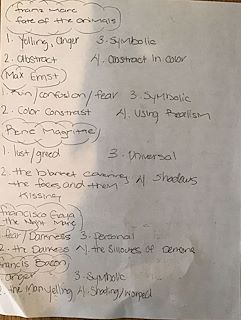 Franz Marc
fate of the animals
1. Yelling, anger 3. Symbolic
2. Abstract 4. Abstract in color
Max Ernst
1. Run/confusion/fear 3. Symbolic
2. Color Constrast 4. Using Realism
Rene Magritte
1. lust/greed 3. Universal
2. the blanket covering 4. Shadows
the faces and them
kissing
Francisco Goya
the Night Mare
fear/Darkness 3. Personal
2. the Darkness 4. the Silloutes of demons
Francis Bacon
anger 3. Symbolic
2. the Man yelling 4. Shading/warped